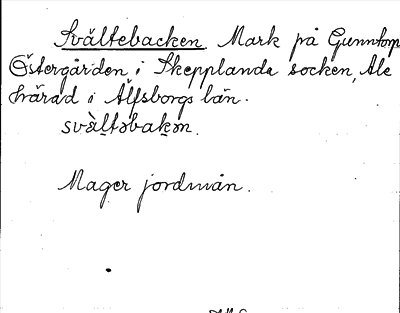 Svältebacken Mark på Gunntorp
Östergården i Skepplanda socken, Ale
härad i Älfsborgs län.
svàltəbakən.
Mager jordmån.